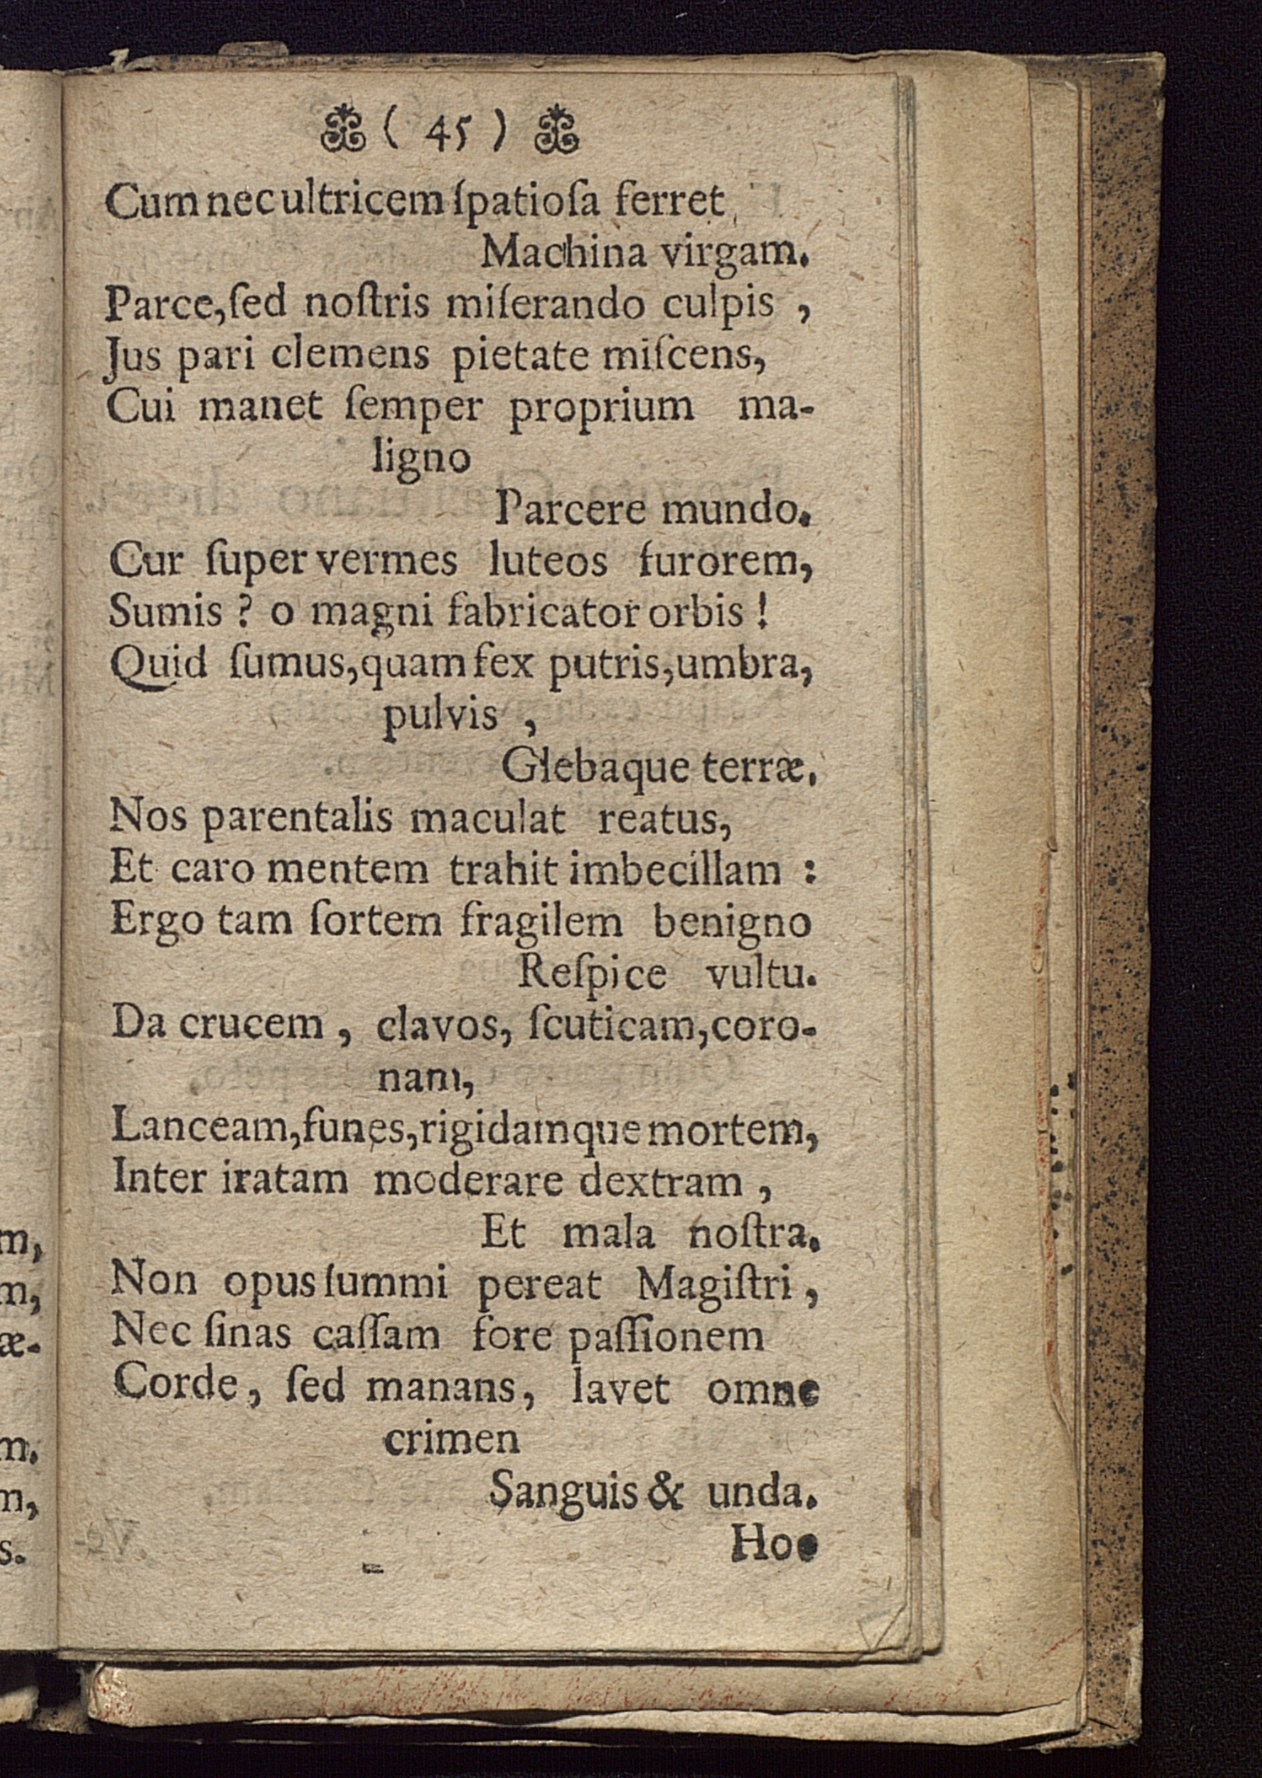 ( 45 )
Cum nec ultricem ſpatioſa ferret
Machina virgam.
Parce, ſed noſtris miſerando culpis ,
Jus pari clemens pietate miſcens,
Cui manet ſemper proprium ma-
ligno
Parcere mundo.
Cur ſuper vermes luteos furorem,
Sumis ? o magni fabricator orbis !
Quid ſumus, quam fex putris, umbra,
pulvis ,
Glebaque terræ.
Nos parentalis maculat reatus,
Et caro mentem trahit imbecillam :
Ergo tam ſortem fragilem benigno
Reſpice vultu.
Da crucem , clavos, ſcuticam, coro-
nam,
Lanceam, funes, rigidamque mortem,
Inter iratam moderare dextram ,
Et mala noſtra.
Non opus ſummi pereat Magiſtri ,
Nec ſinas caſſam fore paſſionem
Corde, ſed manans, lavet omne
crimen
Sanguis & unda.
Hoc
m,
m,
æ.
m.
m,
s.